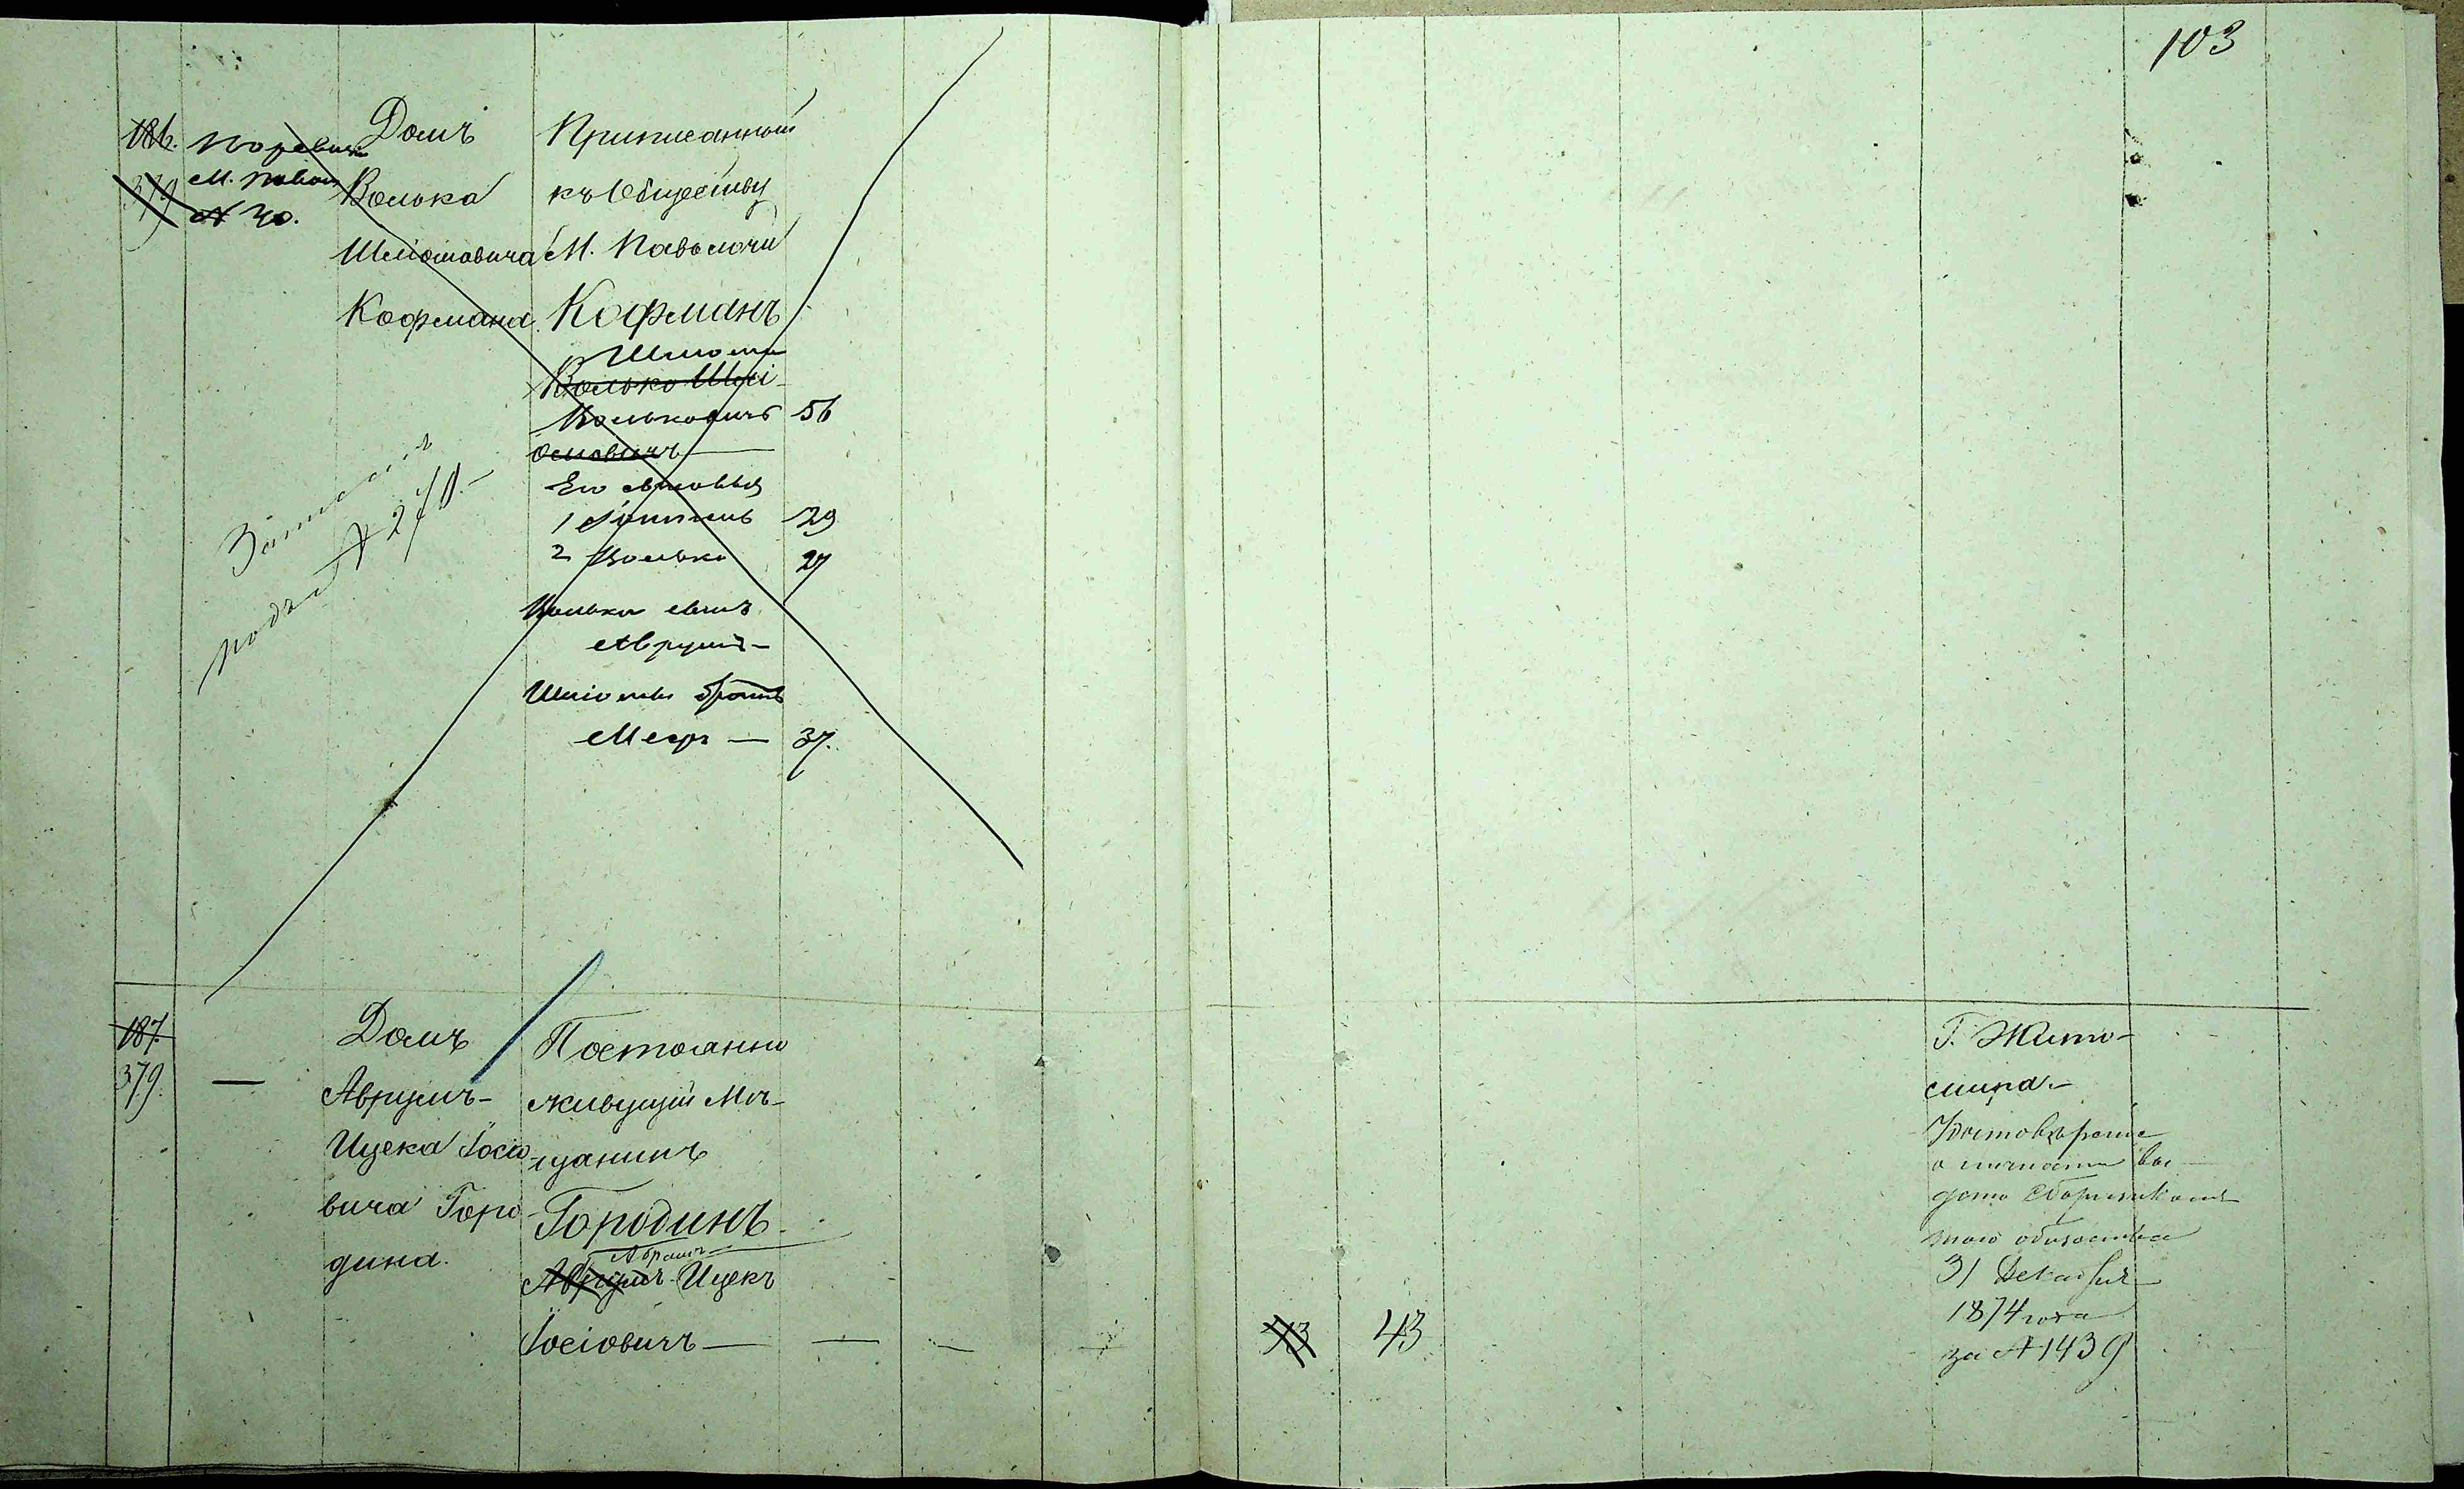 103
186.
379
По ревиз
М. Павол
№ 40.
Домъ
Волька
Шліомовича
Кофмана
Приписанный
къ Обществу
М. Паволочи
Кофманъ
Шліома
Волько Шлі-
Вольковичъ 56
омовичъ
Его сыновья
1 29
2 Волько 27
Волька сынъ
Аврумъ -
Шліомы братъ
Меер — 37.
Записанъ
подъ № 270.-
187.
379.
—
Домъ
Аврумъ-
Ицека Іосіо-
вича Горо-
дина.
Постоянно
живущій Мѣ-
щанинъ
Городинъ
Абрамъ
Аврумъ-Ицекъ
Іосіовичъ — — — —
43 43
Г. Жито-
мира.-
Удостовѣреніе
о личности вы-
дано Сборщикомъ
того общества
31 Декабря
1874 года
за № 1439